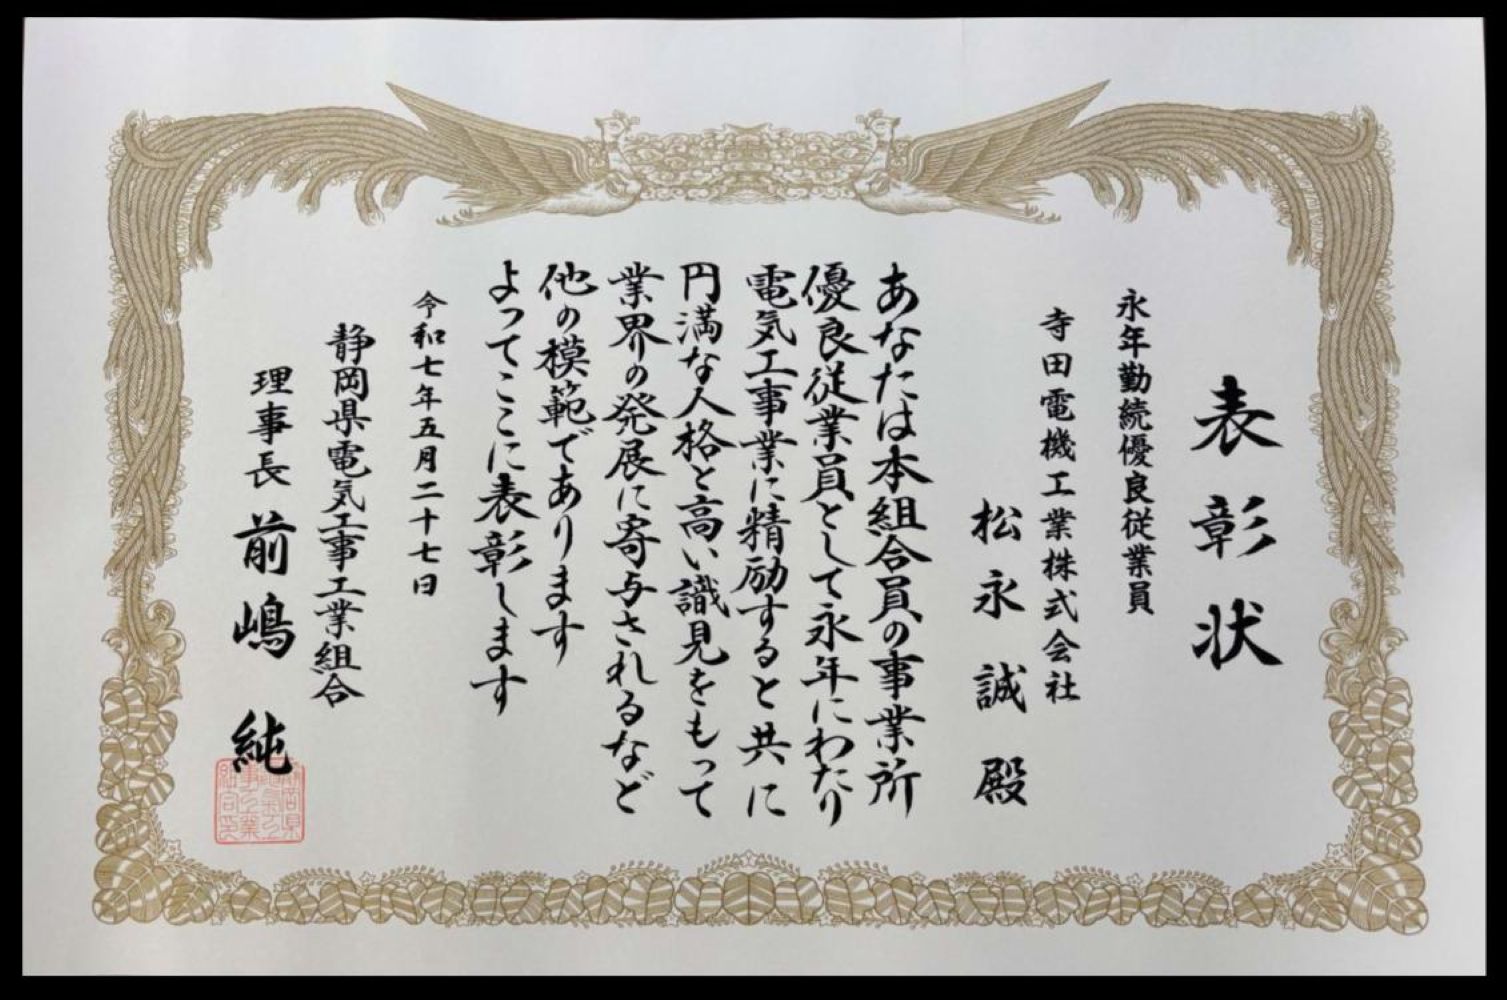 表彰状
永年勤続優良従業員
寺田電機工業株式会社
松永誠殿
あなたは本組合員の事業所
優良従業員として永年にわたり
電気工事業に精励すると共に
円満な人格と高い識見をもって
業界の発展に寄与されるなど
他の模範であります
よってここに表彰します
令和七年五月二十七日
静岡県電気工事工業組合
理事長 前嶋純